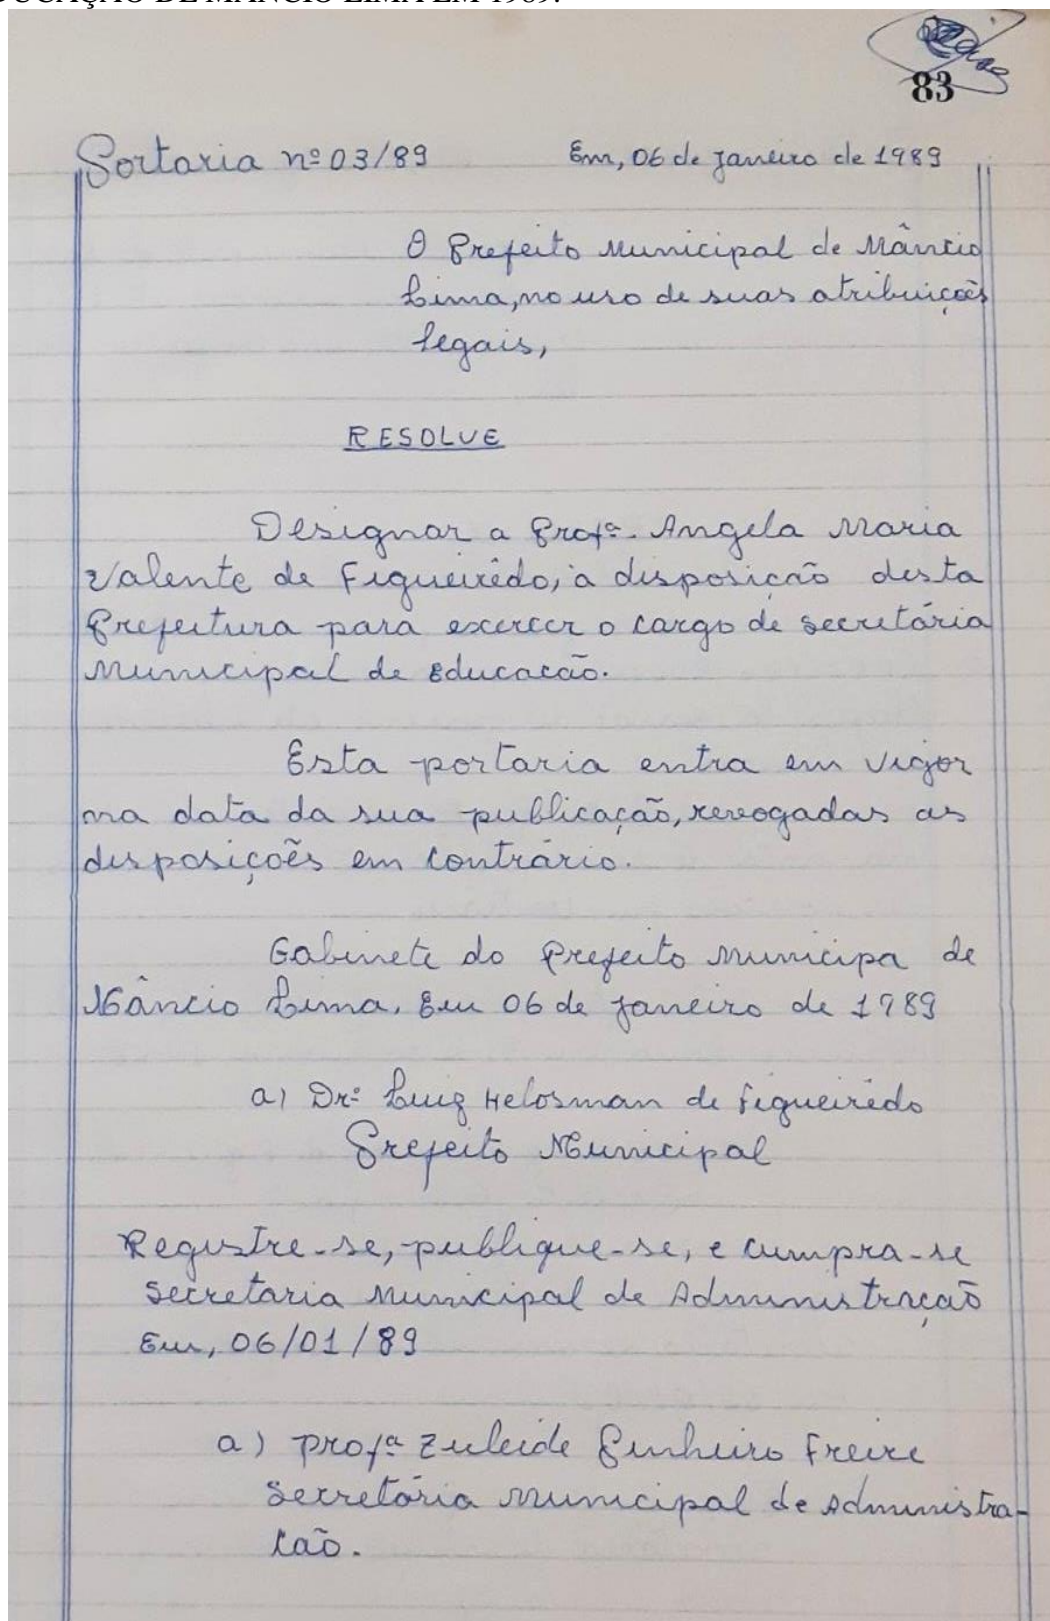 DUCAÇÃO DE MÂNCIO LIMA EM 1989.
83
Portaria nº 03/89 Em, 06 de Janeiro de 1989
O Prefeito Municipal de Mâncio
Lima, no uso de suas atribuições
legais,
RESOLVE
Designar a Profª. Angela Maria
Valente de Figueirêdo, à disposição desta
Prefeitura para exercer o cargo de secretária
Municipal de Educacão.
Esta portaria entra em vigor
na data da sua publicação, revogadas as
disposições em contrário.
Gabinete do Prefeito Municipa de
Mâncio Lima. Em 06 de janeiro de 1989
a) Drº Luiz Helosman de Figueirêdo
Prefeito Municipal
Registre-se, publique-se, e cumpra-se
Secretaria Municipal de Administração
Em, 06/01/89
a) profª Zuleide Pinheiro Freire
Secretária Municipal de Administra-
cão.